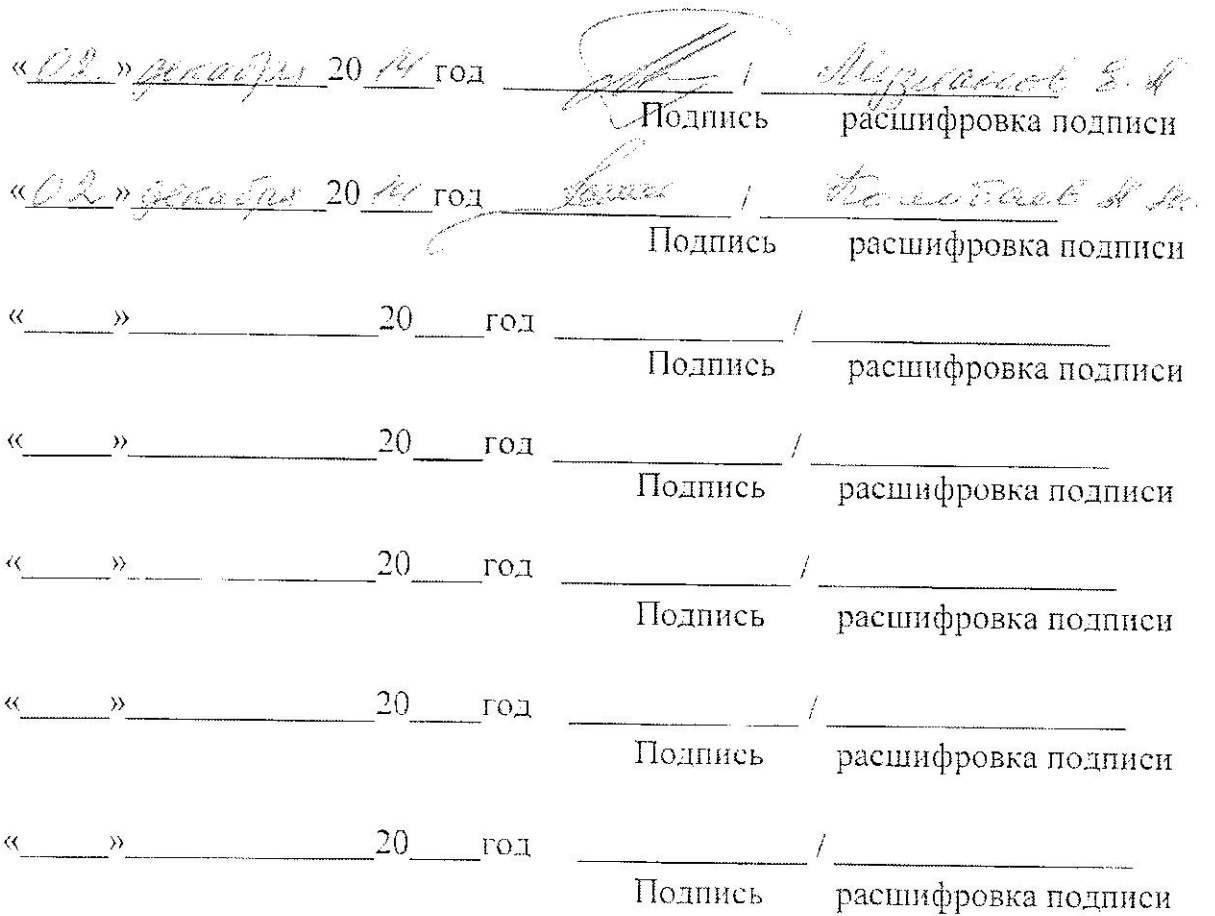 «02.» декабря 2014 год ________ / Музманов Е. А
Подпись расшифровка подписи
«02» декабря 2014 год ________ / А
Подпись расшифровка подписи
«____»____________20____год ____________/______________
Подпись расшифровка подписи
«____»____________20____год ____________/______________
Подпись расшифровка подписи
«____»____________20____год ____________/______________
Подпись расшифровка подписи
«____»____________20____год ____________/______________
Подпись расшифровка подписи
«____»____________20____год ____________/______________
Подпись расшифровка подписи